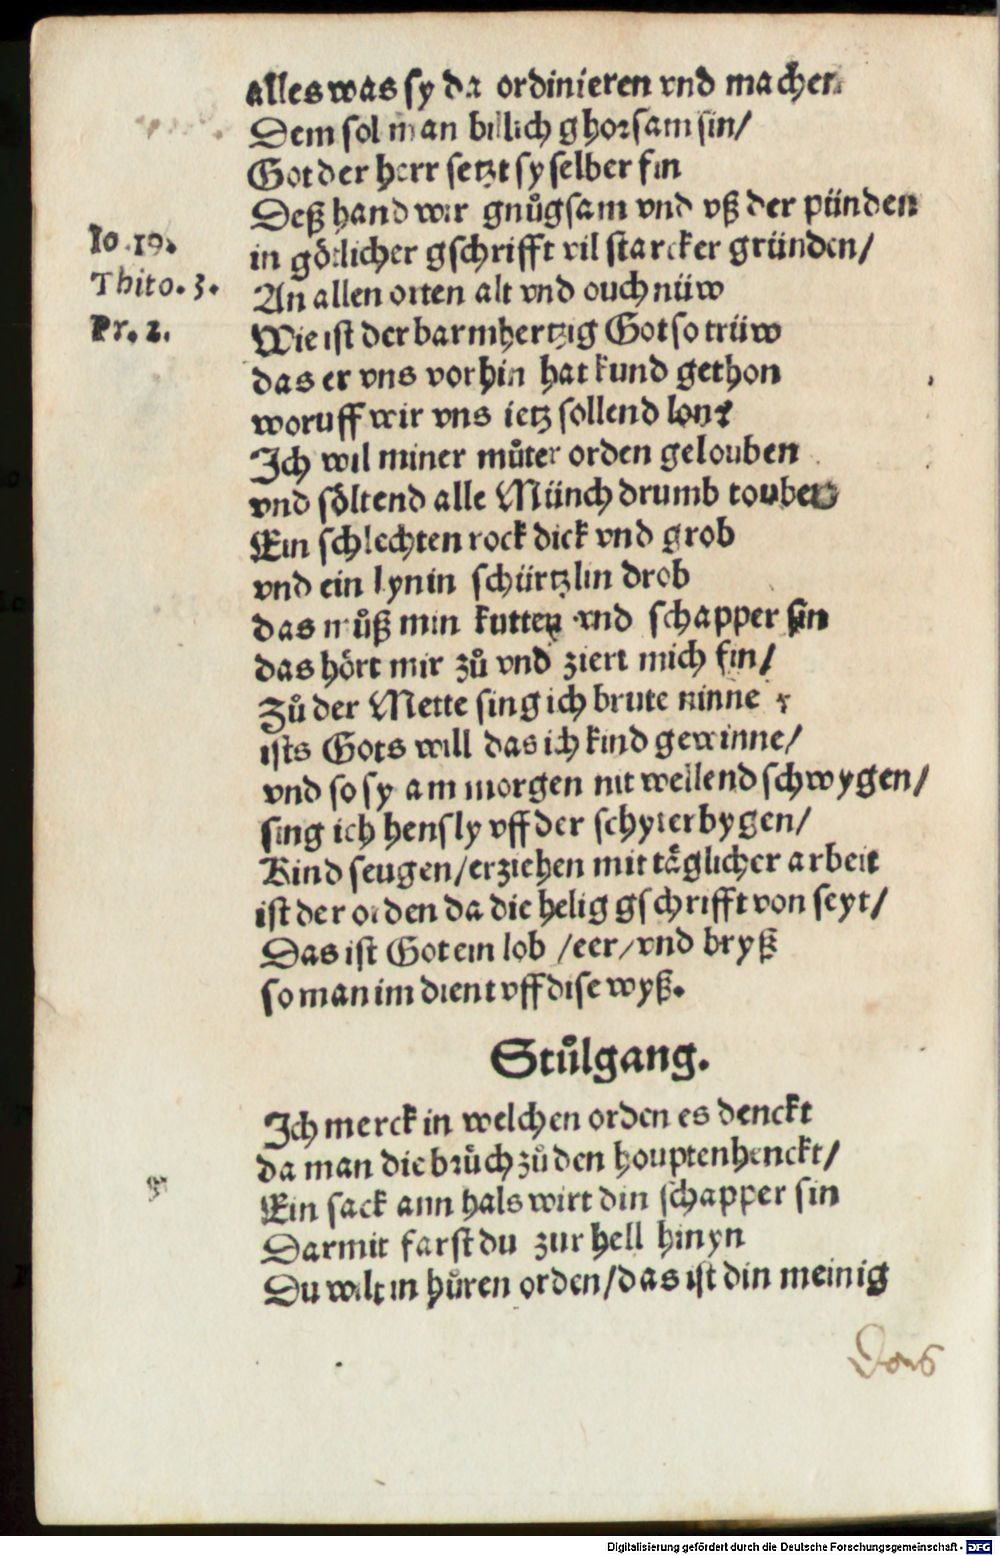 alles was sy da ordinieren vnd machen
Dem sol man billich ghorsam sin/
Got der herr setzt sy selber fin
Deß hand wir gnůgsam vnd vß der pünden
Io. 19.
in götlicher gschrifft vil starcker gründen/
Thito. 3.
An allen orten alt vnd ouch nüw
Pr. 2.
Wie ist der barmhertzig Got so trüw
das er vns vorhin hat kund gethon
woruff wir vns ietz sollend lon?
Ich wil miner můter orden gelouben
vnd söltend alle Münch drumb touben
Ein schlechten rock dick vnd grob
vnd ein lynin schürtzlin drob
das můß min kutten vnd schapper sin
das hört mir zů vnd ziert mich fin/
Zů der Mette sing ich brute ninne
ists Gots will das ich kind gewinne/
vnd so sy am morgen nit wellend schwygen/
sing ich hensly vff der schyterbygen/
Kind seugen/erziehen mit täglicher arbeit
ist der orden da die helig gschrifft von seyt/
Das ist Got ein lob /eer/vnd bryß
so man im dient vff dise wyß.
Stůlgang.
Ich merck in welchen orden es denckt
da man die brůch zů den houpten henckt/
Ein sack ann hals wirt din schapper sin
Darmit farst du zur hell hinyn
Du wilt in hůren orden/das ist din meinig
Digitalisierung gefördert durch die Deutsche Forschungsgemeinschaft - DFG